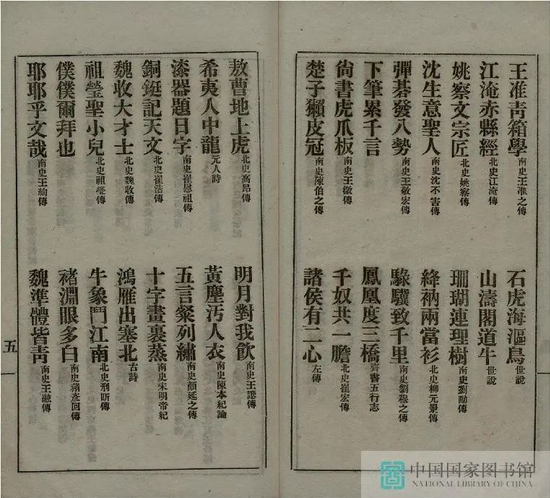 王准青箱學 南史王准之傳 石虎海漚鳥 世說
江淹赤縣經 南史江淹傳 山濤閣道牛 世說
姚察文宗匠 南史姚察傳 珊瑚連理樹 南史劉勔傳
沈生意聖人 南史沈不害傳 絳衲兩當衫 北史柳元景傳
彈碁發八勢 南史王敬宏傳 騄驥致千里 南史劉穆之傳
下筆累千言 鳳凰度三橋 齊書五行志
尙書虎爪板 南史王微傳 千奴共一膽 北史崔宏傳
楚子獺皮冠 南史陳伯之傳 諸侯有二心 左傳
敖曹地上虎 北史高昂傳 明月對我飲 南史王諶傳
希夷人中龍 元人詩 黃塵汚人衣 南史陳本紀論
漆器題日字 南史崔慰祖傳 五言粲列繡 南史顏延之傳
銅鋌記天文 北史崔浩傳 十字畫裹蒸 南史宋明帝紀
魏收大才士 北史魏收傳 鴻雁出塞北 古詩
祖瑩聖小兒 北史祖瑩傳 牛象鬥江南 北史刑昕傳
僕僕爾拜也 褚淵眼多白 南史褚彥回傳
耶耶乎文哉 南史王絢傳 魏準體皆青 南史王融傳
五
中国国家图书馆
NATIONAL LIBRARY OF CHINA